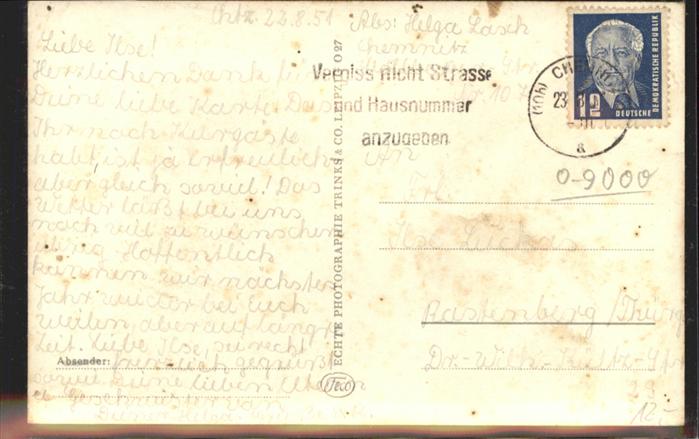 Chtz. 22.8.51
Liebe Ilse!
Herzlichen Dank für
Deine liebe Karte. Das
Ihr noch Kurgäste
habt, ist ja erfreulich
aber gleich soviel! Das
Wetter läßt bei uns
noch viel zu wünschen
übrig. Hoffentlich
können wir nächstes
Jahr wieder bei Euch
weilen, aber auf lange
Zeit. Liebe Ilse, sei recht
herzlich gegrüßt
sowie Deine lieben Eltern
u. Geschwister von
Deiner Helga
Absender:
ECHTE PHOTOGRAPHIE TRINKS & CO. LEIPZIG O 27
Trico
Abs: Helga Lasch
Chemnitz
Str.
Nr. 10
Vergiss nicht Strasse
und Hausnummer
anzugeben
CHEMNITZ
23. 8.
a
12
DEUTSCHE
DEMOKRATISCHE REPUBLIK
0-9000
An
Frl.
Ilse Lückas
Rastenberg/Thürg
Dr.-Wilh.-Külz-Str
29
12,-